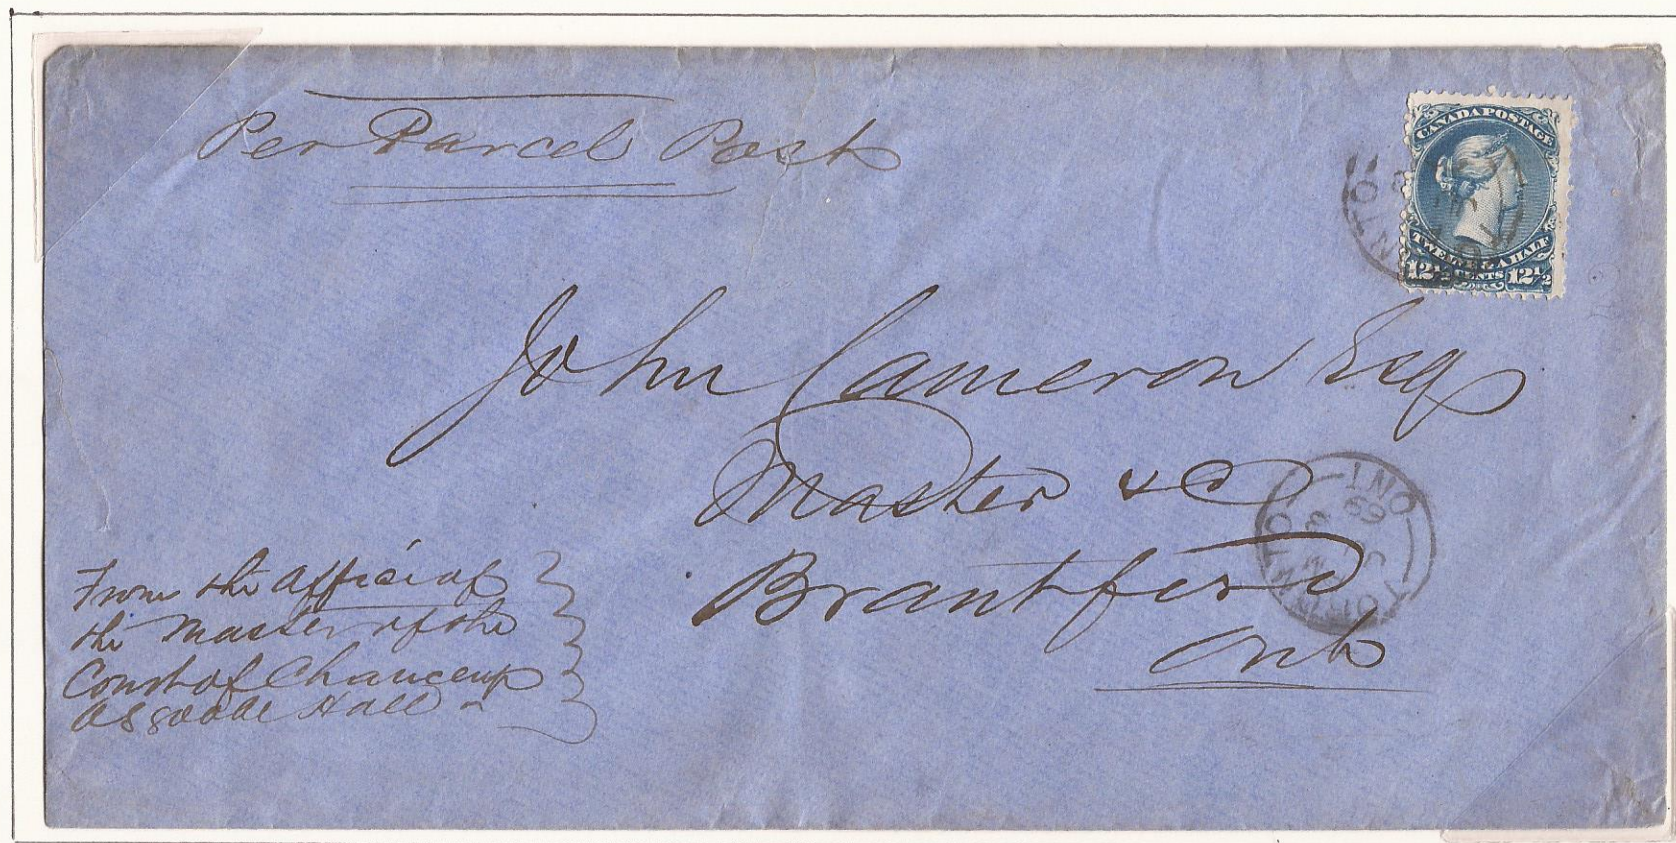 Per Parcel Post
CANADA POSTAGE
TWELVE & A HALF
12½ CENTS 12½
John Cameron Esq
Master &c
Brantford
Ont
TORONTO
ONT
69
From the Office of
the Master of the
Court of Chancery
Osgoode Hall